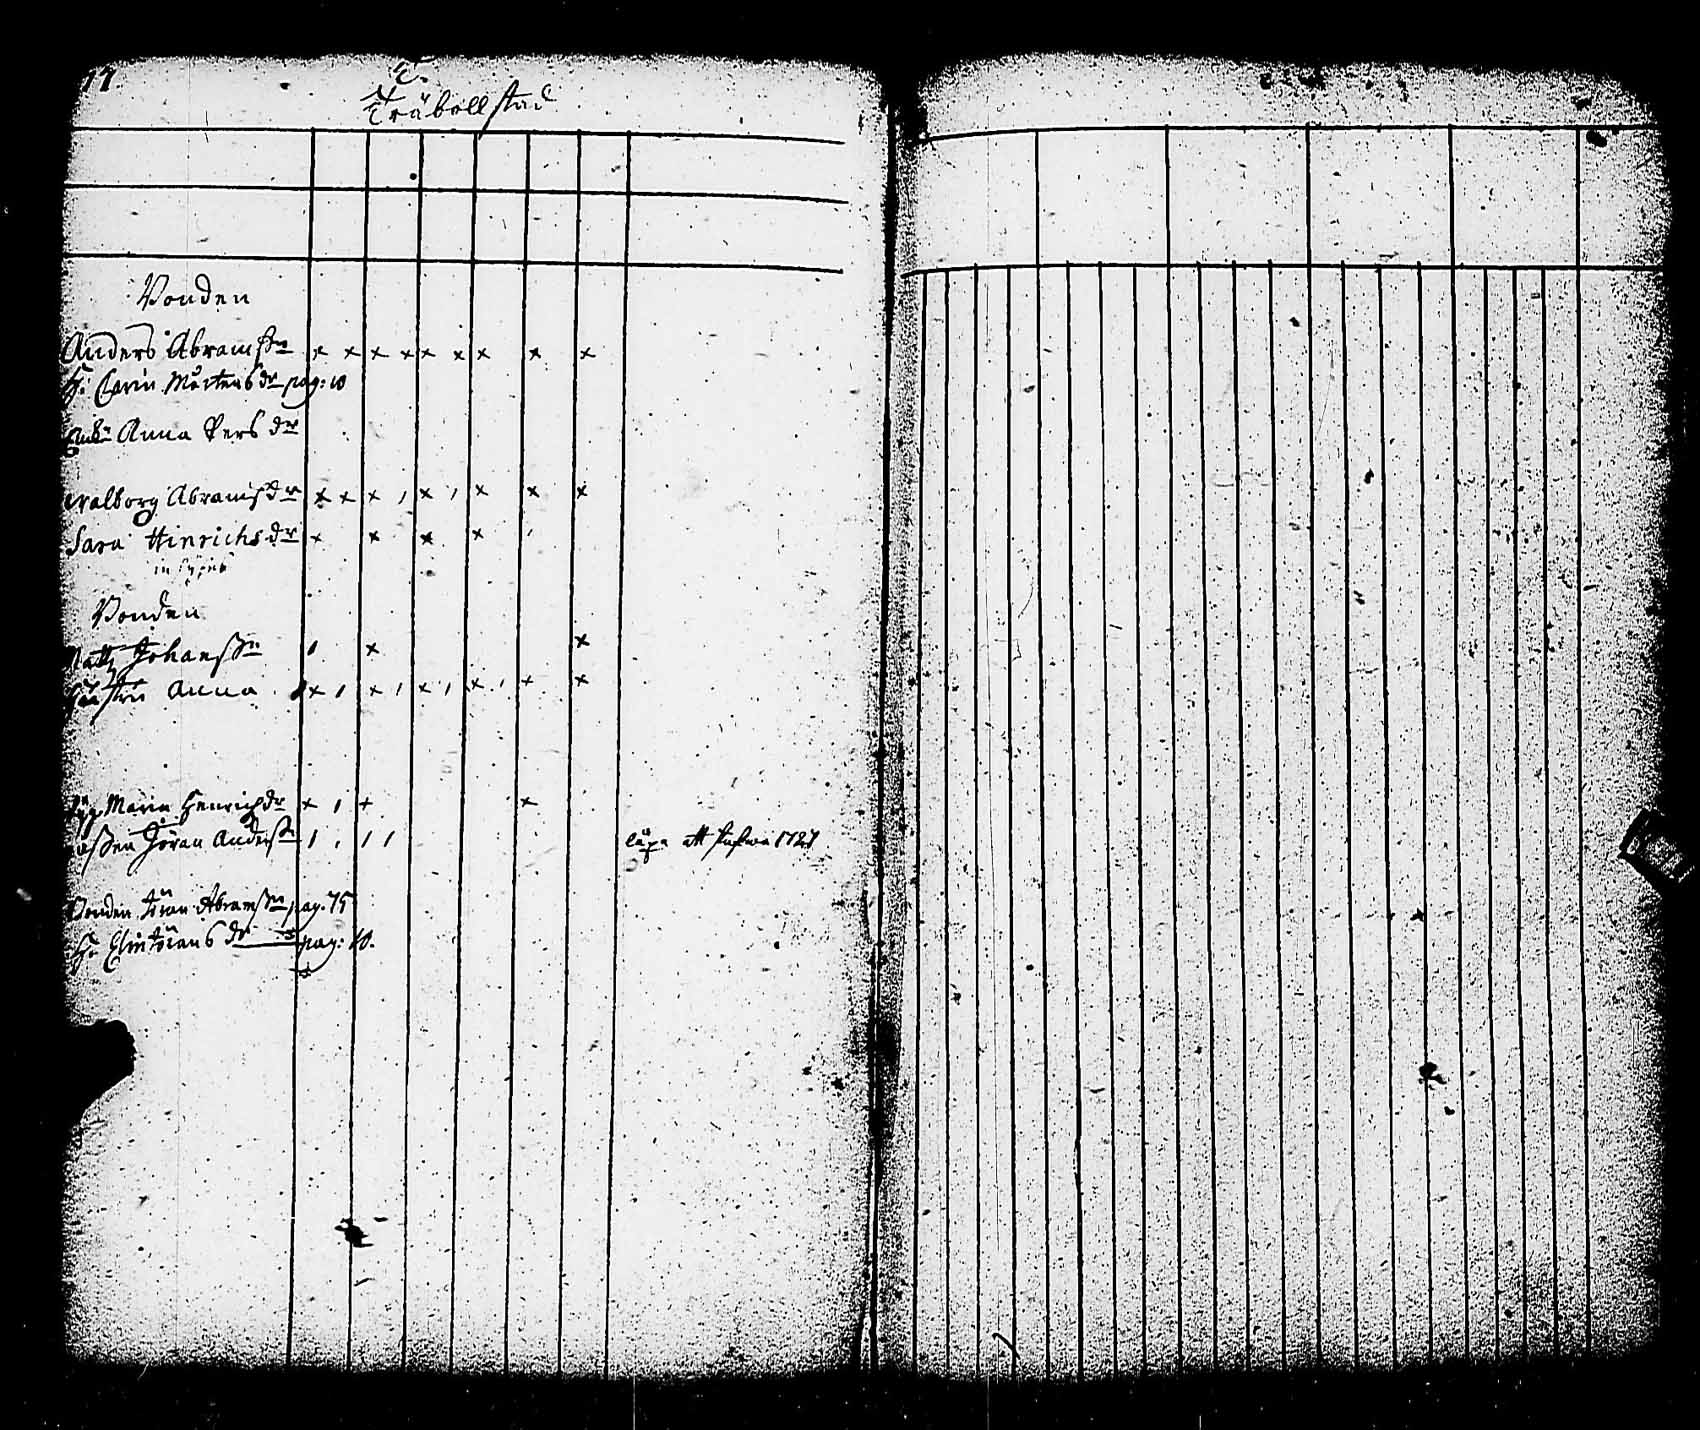 77
Träbollstad
Bonden
Anders Abramsſn x x x x x x x x x
H: Carin Mårtens dr pag: 10
Enk: Anna Pers dr
Walborg Abramsdr x x x 1 x 1 x x x
Sara Hinrichs dr x x x x 1
Bonden
Matts Johansſn 1 x x
Hustru Anna x 1 x 1 x 1 x 1 x x
Maria Henrichsdr x 1 x x
Jöran Andersſn 1 1 1 1
att
Bonden Jöran Abramsſn pag. 75
H: Elin Jörans dr pag: 10.